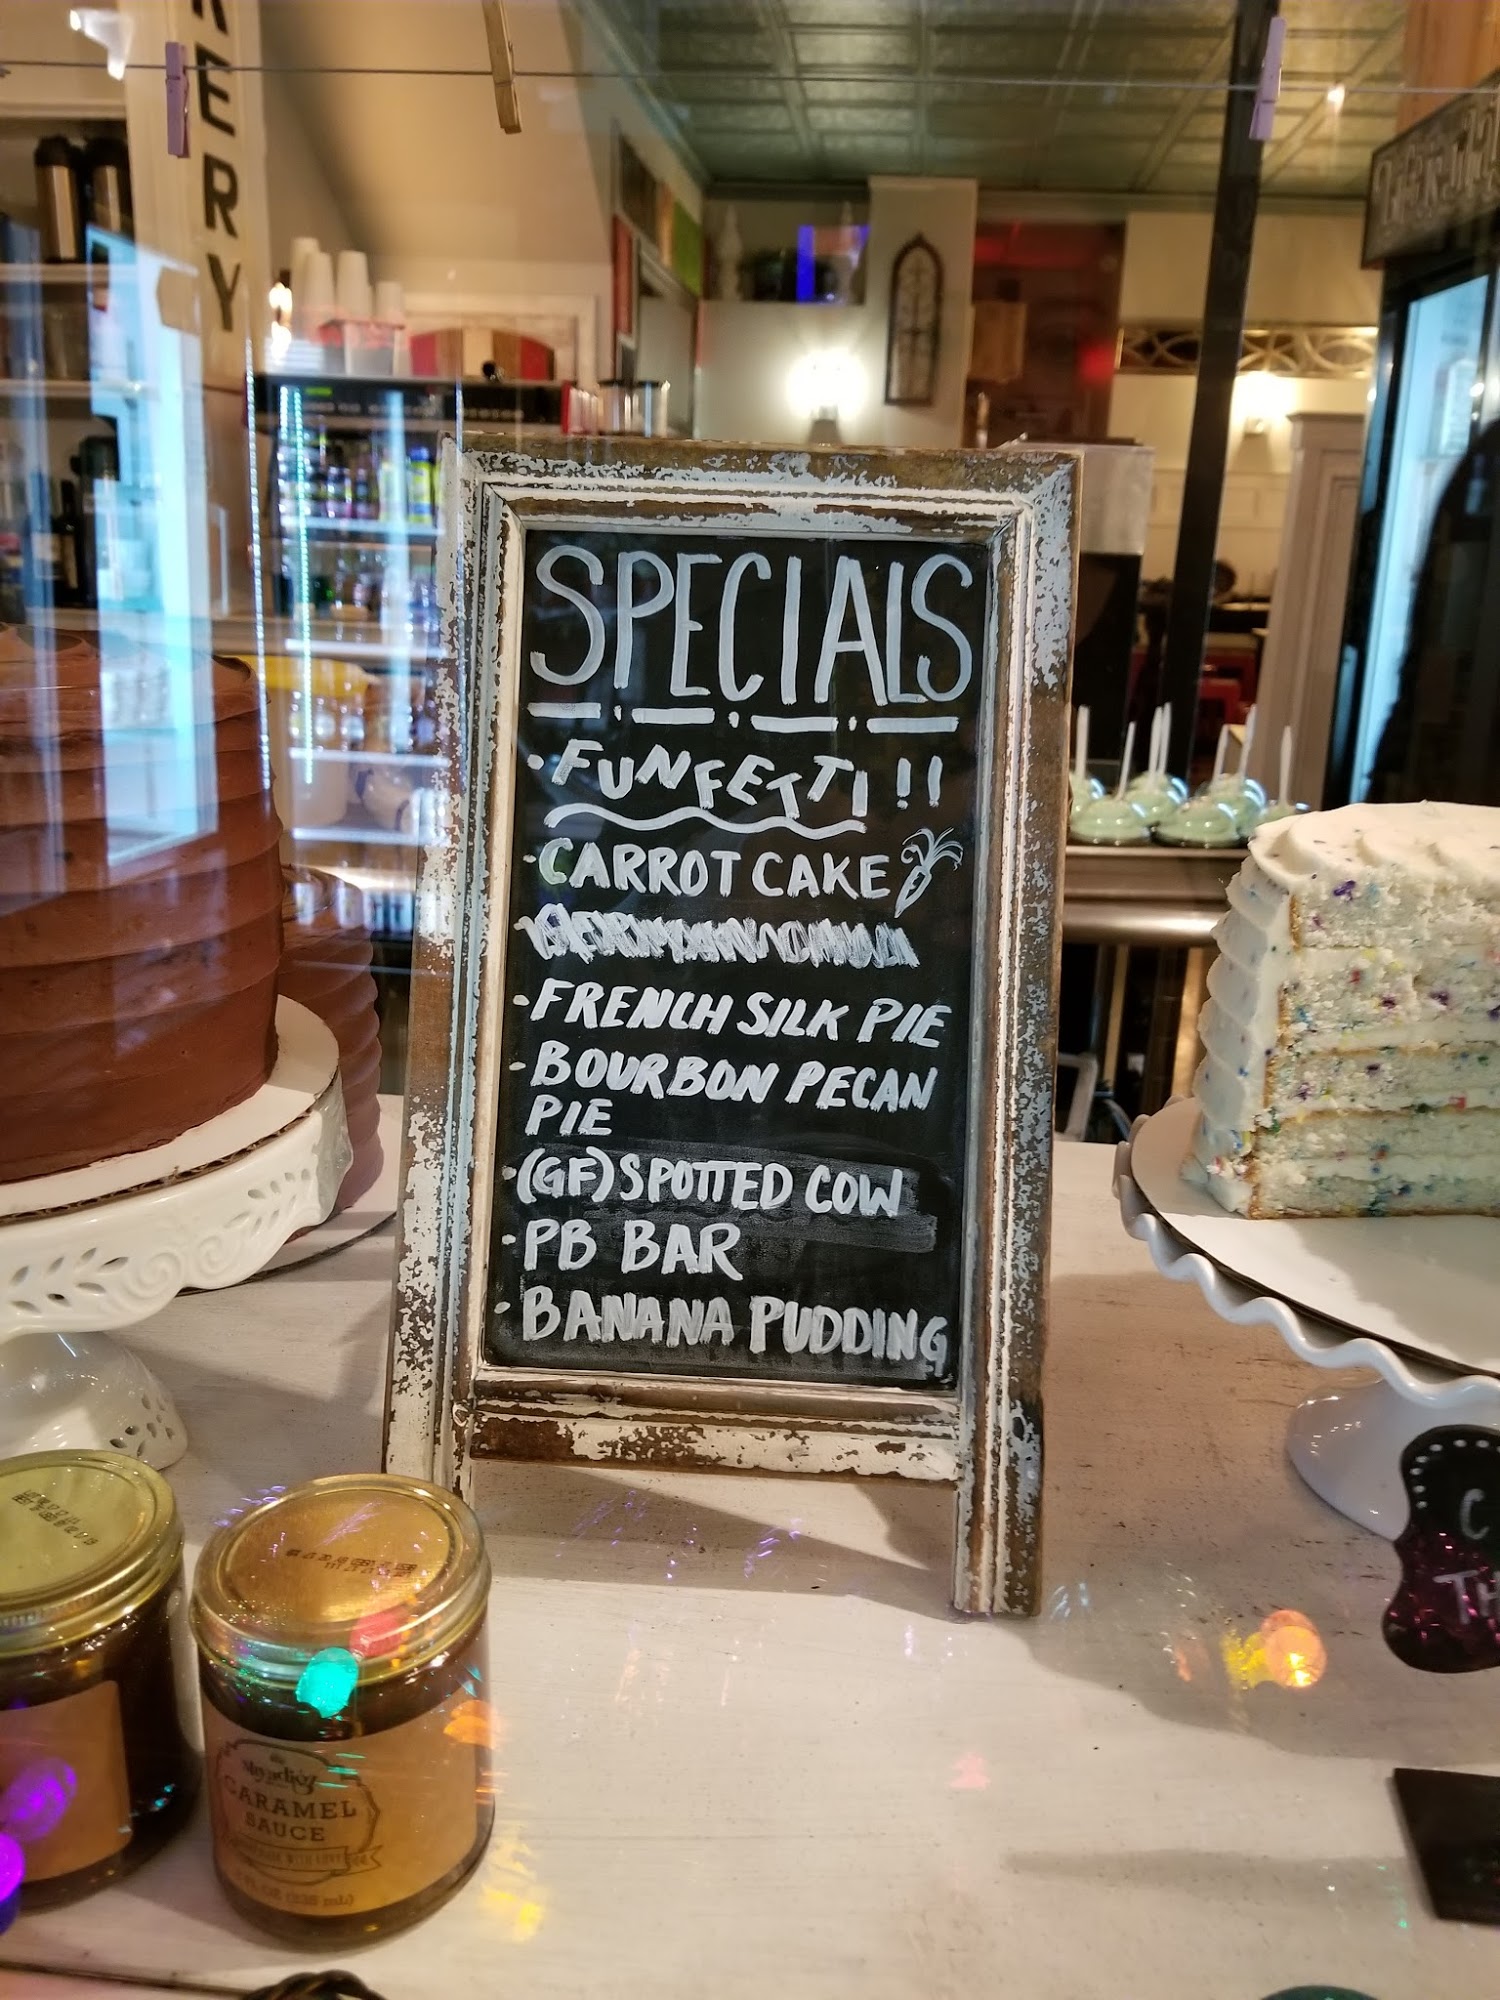 KERY
SPECIALS
· FUNFETTI!!
- CARROT CAKE
- FRENCH SILK PIE
- BOURBON PECAN
PIE
· (GF) SPOTTED COW
- PB BAR
· BANANA PUDDING
CARAMEL
SAUCE
C
TH